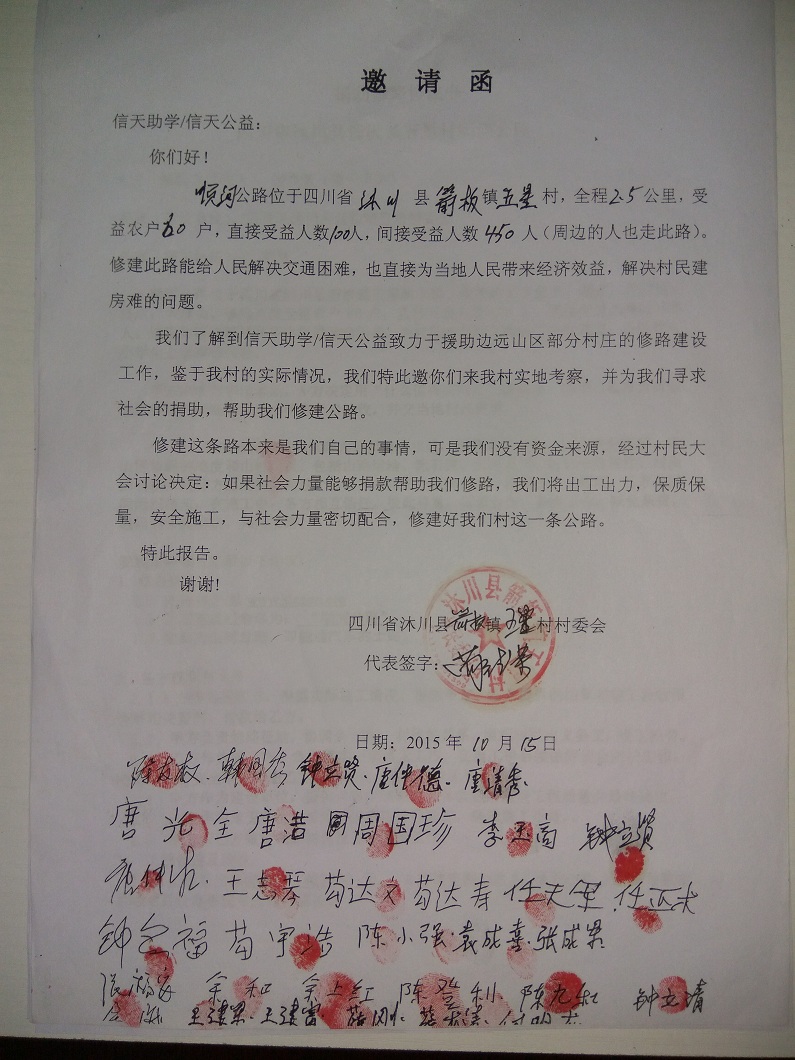 邀 请 函
信天助学/信天公益：
你们好！
顺河公路位于四川省 沐川 县 箭板镇五星村，全程2.5公里，受
益农户50户，直接受益人数100人，间接受益人数450人（周边的人也走此路）。
修建此路能给人民解决交通困难，也直接为当地人民带来经济效益，解决村民建
房难的问题。
我们了解到信天助学/信天公益致力于援助边远山区部分村庄的修路建设
工作，鉴于我村的实际情况，我们特此邀你们来我村实地考察，并为我们寻求
社会的捐助，帮助我们修建公路。
修建这条路本来是我们自己的事情，可是我们没有资金来源，经过村民大
会讨论决定：如果社会力量能够捐款帮助我们修路，我们将出工出力，保质保
量，安全施工，与社会力量密切配合，修建好我们村这一条公路。
特此报告。
谢谢!
四川省沐川县箭板镇五星村村委会
代表签字：
日期：2015年10月15日
钟立贤 唐伟德
唐光全 唐浩 周国珍 李玉高 钟立贤
王志琴 苟达文 苟达寿
苟宇浩 陈小强 袁成喜 张成
余和 余上红 陈登利 陈九红 钟立清
王建富